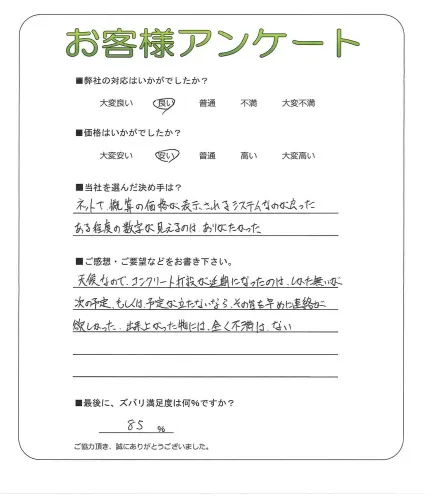 お客様アンケート
■弊社の対応はいかがでしたか？
大変良い 良い 普通 不満 大変不満
■価格はいかがでしたか？
大変安い 安い 普通 高い 大変高い
■当社を選んだ決め手は？
ネットで概算の価格が表示されるシステムなのが良った
ある程度の数字が見えるのは、ありがたかった
■ご感想・ご要望などをお書き下さい。
天候なので、コンクリート打設が延期になったのは、しかた無いが
次の予定、もしくは、予定が立たないなら、その旨を早めに連絡が
欲しかった。出来上がった物には、全く不満は、ない
■最後に、ズバリ満足度は何%ですか？
85 %
ご協力頂き、誠にありがとうございました。